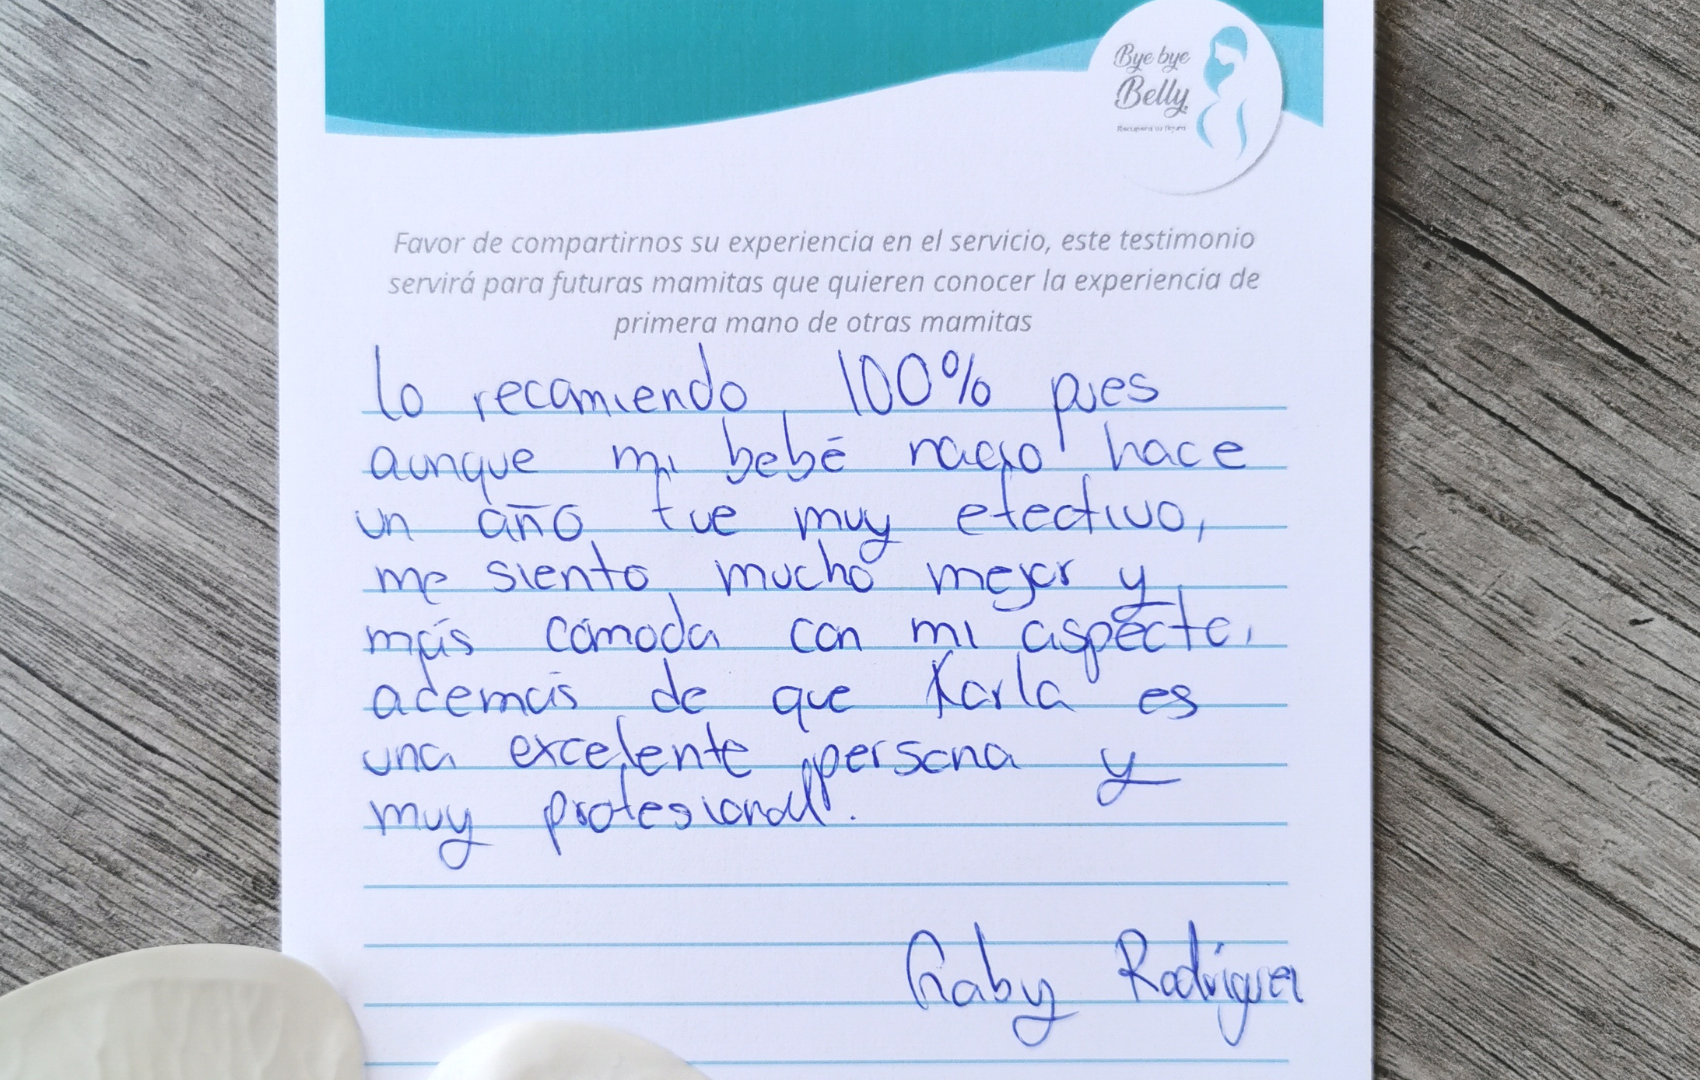 Bye bye
Belly
Recupera tu figura
Favor de compartirnos su experiencia en el servicio, este testimonio
servirá para futuras mamitas que quieren conocer la experiencia de
primera mano de otras mamitas
Lo recomiendo 100% pues
aunque mi bebé nacio hace
un año, fue muy efectivo,
me siento mucho mejor y
más cómoda con mi aspecto,
además de que Karla es
una excelente persona y
muy profesional.
Gaby Rodríguez